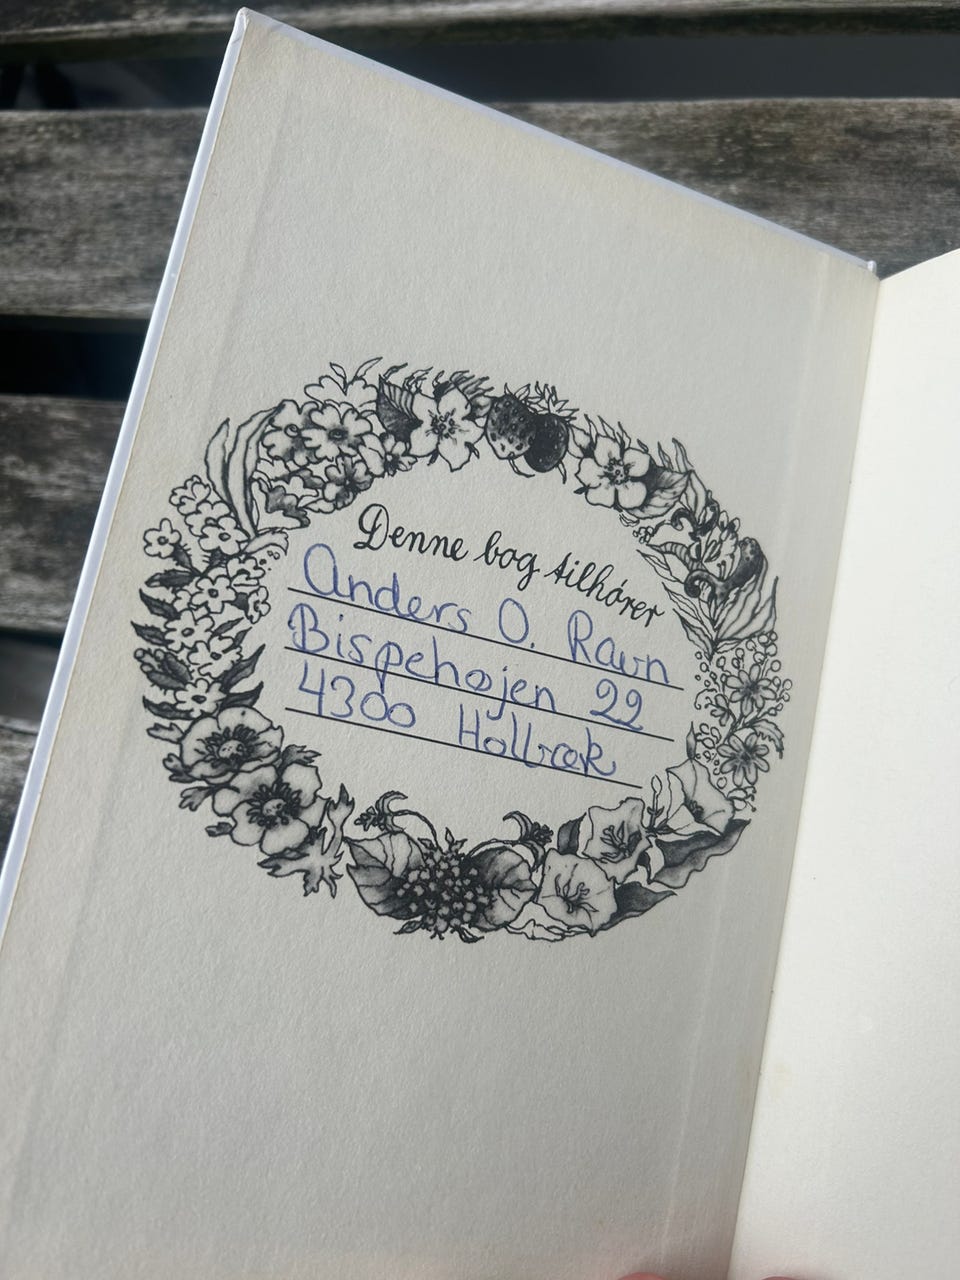 Denne bog tilhører
Anders O. Ravn
Bispehøjen 22
4300 Holbæk